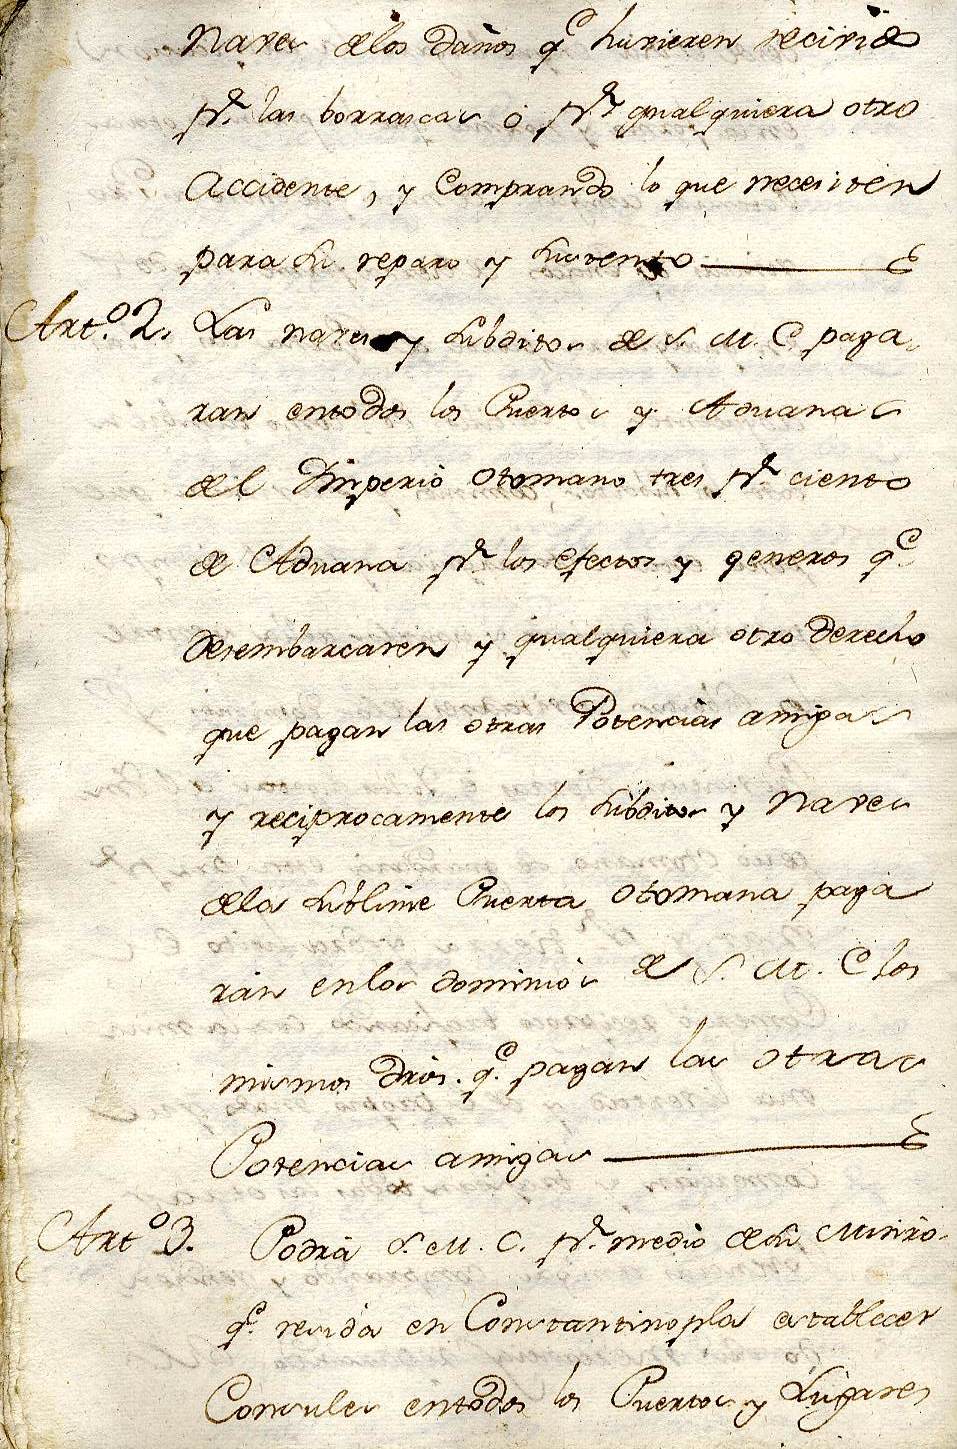 Naves delos daños q.e huvieren recivido
p.r las borrascas ó p.r qualquiera otro
Accidente, y Comprando lo que necesiten
para su reparo y sustento
Art.o 2. Las naves y subditos de S. M. C. paga
ran entodos los Puertos y Aduanas
del Imperio Otomano tres p.r ciento
de Aduana p.r los efectos y generos q.e
desembarcaren y qualquiera otro derecho
que pagan las otras Potencias amigas
y reciprocamente los subditos y Naves
dela sublime Puerta Otomana paga
ran enlos dominios de S. M. C los
mismos dr̃os. q.e pagan las otras
Potencias amigas
Art.o 3. Podrá S. M. C. p.r medio desu Minro.
q.e resida en Constantinopla establecer
Consules entodos los Puertos y Lugares